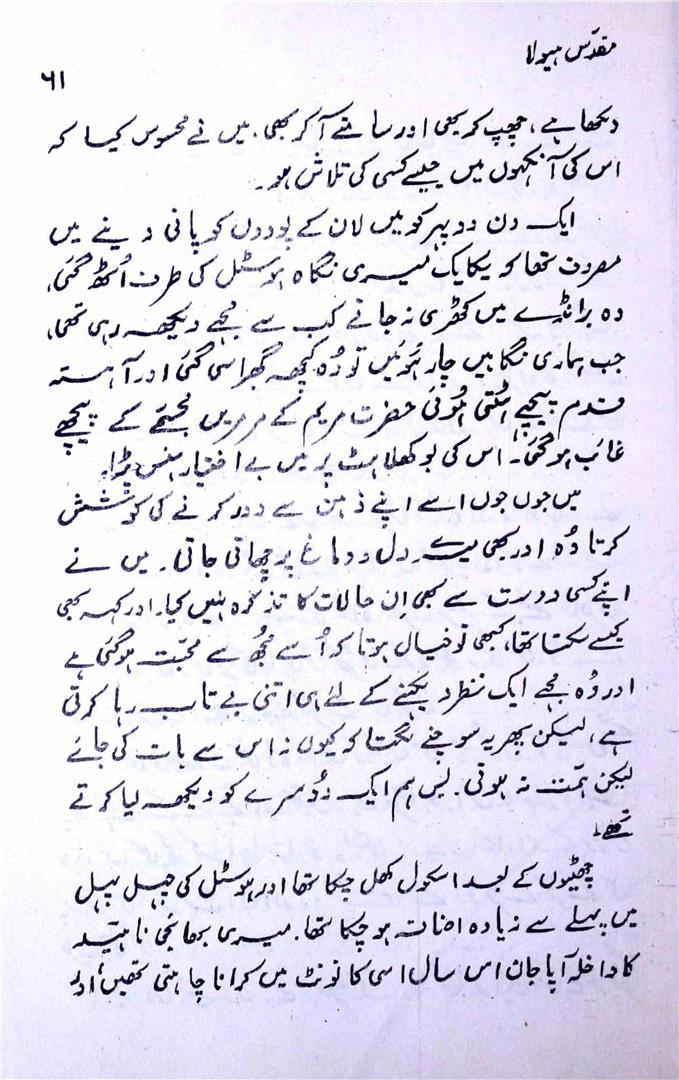 مقدّس ہیولا
۶۱
دیکھا ہے، چھپ کر بھی اور سامنے آ کر بھی، میں نے محسوس کیا کہ
اس کی آنکھوں میں جیسے کسی کی تلاش ہو۔
ایک دن دوپہر کو میں لان کے پودوں کو پانی دینے میں
مصروف تھا کہ یکایک میری نگاہ ہوسٹل کی طرف اُٹھ گئی،
وہ برانڈے میں کھڑی نہ جانے کب سے مجھے دیکھ رہی تھی،
جب ہماری نگاہیں چار ہوئیں تو وُہ کچھ گھبرا سی گئی اور آہستہ
قدم پیچھے ہٹتی ہُوئی حضرت مریم کے مرمریں مجسّمے کے پیچھے
غائب ہو گئی۔ اس کی بوکھلاہٹ پر میں بے اختیار ہنس پڑا۔
میں جوں جوں اسے اپنے ذہن سے دور کرنے کی کوشش
کرتا وُہ اور بھی میرے دل و دماغ پر چھاتی جاتی۔ میں نے
اپنے کسی دوست سے بھی اِن حالات کا تذکرہ نہیں کیا۔ اور کہہ بھی
کیسے سکتا تھا، کبھی تو خیال ہوتا کہ اُسے مجھ سے محبّت ہو گئی ہے
اور وُہ مجھے ایک نظر دیکھنے کے لئے ہی اتنی بے تاب رہا کرتی
ہے، لیکن پھر یہ سوچنے لگتا کہ کیوں نہ اس سے بات کی جائے
لیکن ہمّت نہ ہوتی۔ بس ہم ایک دُوسرے کو دیکھ لیا کرتے
تھے۔
چھٹیوں کے بعد اسکول کھل چکا تھا اور ہوسٹل کی چہل پہل
میں پہلے سے زیادہ اضافہ ہو چکا تھا۔ میری بھانجی ناہید
کا داخلہ آپا جان اس سال اسی کانونٹ میں کرانا چاہتی تھیں، اور